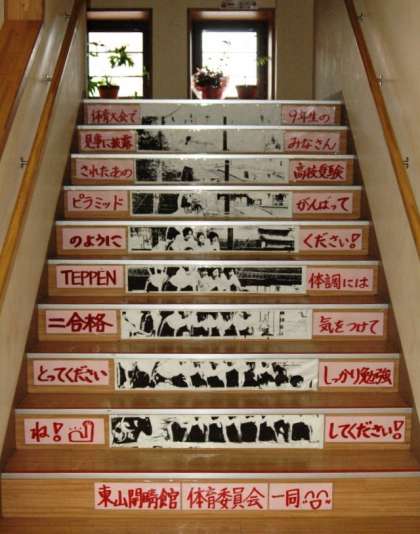 体育大会で
見事に披露
されたあの
ピラミッド
のように
TEPPEN
二合格
とってください
ね!
9年生の
みなさん
高校受験
がんばって
ください!
体調には
気をつけて
しっかり勉強
してください!
東山開晴館 体育委員会 一同